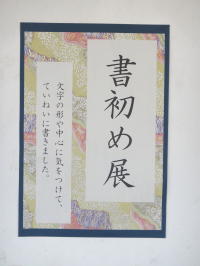 書初め展
文字の形や中心に気をつけて、
ていねいに書きました。